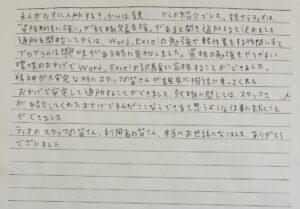 私がティオに入所するきっかけは親 からの紹介でした。親からティオは、
"資格取得に強い"、"就職定着支援"があると聞き通所すると決めました
通所を開始してからは、Word、Excelの勉強や軽作業をする時間に手で
プログラムは興味がある時に参加しました。資格の勉強もやりやすい
環境のおかげでWord、Excelの試験共に合格することができました。
精神が不安定な時にスタッフの皆さんが親身に相談に乗ってくれた
おかげで安定して通所することができました。就職に関しては、スタッフさん
が紹介してくれたおかげで私みがこなしてできると思うような仕事に就くこと
ができました。
ティオのスタッフの皆さん、利用者の皆さん、本当にお世話になりました。ありがとう
ございました